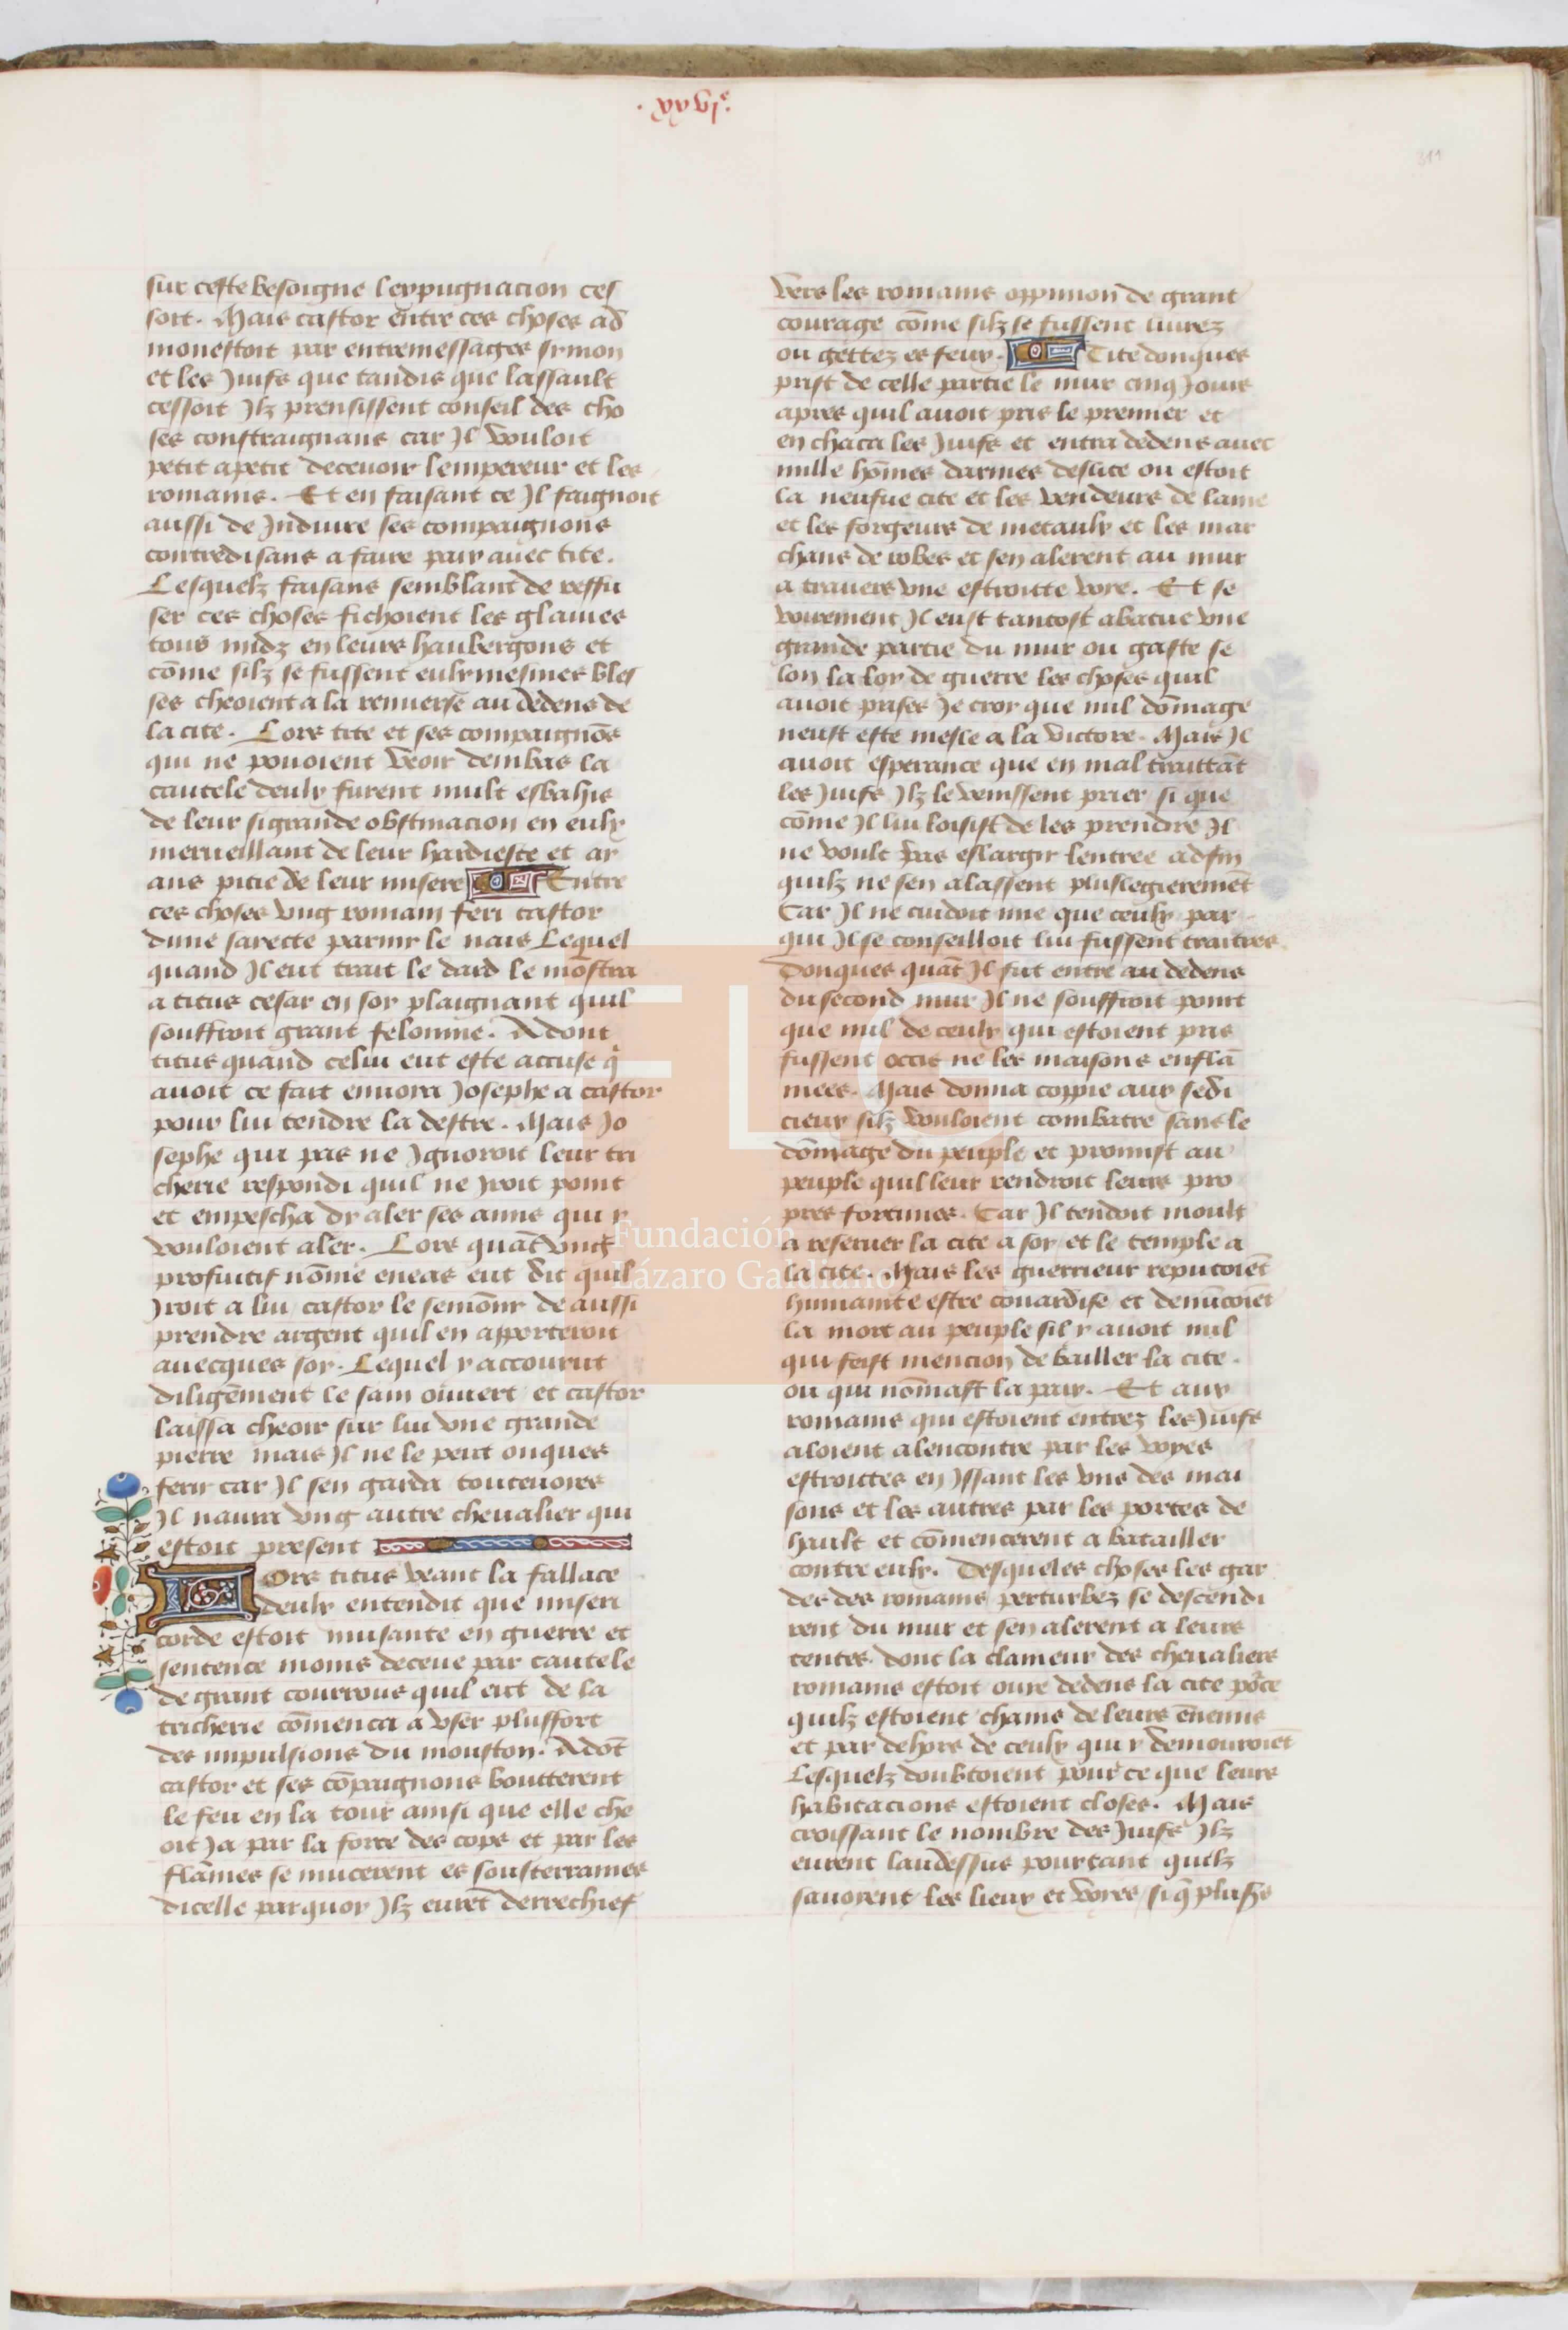 .xxvjᵉ.
311
sur ceste besoigne lexpugnacion ces
sort. Mais castor entre ces choses ad
monestoit par entremessages symon
et les Juifs que tandis que lassault
cessoit Jlz prensissent conseil des cho
ses constraignans car Jl vouloit
petit apetit decevoir lempereur et les
romains. Et en faisant ce Jl faignoit
aussi de Jnduire ses compaignons
contredisans a faire paix avec tite.
Lesquelz faisans semblant de reffu
ser ces choses fichoient les glaives
tous nudz en leurs haubergons et
cōme silz se fussent eulx mesmes bles
ses cheoient a la renverse au dedens de
la cite. Lors tite et ses compaignōs
qui ne pouoient veoir dembas la
cautele deulx furent mult esbahis
de leur si grande obstinacion en eulx
merveillant de leur hardieste et ay
ans pitie de leur misere Entre
ces choses vng romain feri castor
dune sayecte parmy le nais Lequel
quand Jl eut trait le dard le mōstra
a titus cesar en soy plaignant quil
souffroit grant felonnie. Adont
titus quand celui eut este accuse q̄
avoit ce fait envoya Josephe a castor
pour lui tendre la destre. Mais Jo
sephe qui pas ne Jgnoroit leur tri
cherie respondi quil ne Jroit point
et empescha dy aler ses amis qui y
vouloient aler. Lors quāt vng
profuitif nōme eneas eut dit quil
Jroit a lui castor le semōnr de aussi
prendre argent quil en apporteroit
avecques soy. Lequel y accourut
diligēment le sain ouvert et castor
laissa cheoir sur lui vne grande
pierre mais Jl ne le peut onques
ferir car Jl sen garda toutevoies
Jl navra vng autre chevalier qui
estoit present
Lors titus veant la fallace
deulx entendit que miseri
corde estoit nuisante en guerre et
sentence moins deceue par cautele
de grant courrous quil eut de la
tricherie cōmenca a vser plusfort
des impulsions du mouston. Adōt
castor et ses cōpaignons boutterent
le feu en la tour ainsi que elle che
oit Ja par la force des cops et par les
flāmes se mucerent es sousterraines
dicelle par quoy Jlz eurēt derrechief
vers les romains oppinion de grant
courage cōme silz se fussent livrez
ou gettez es feux. Tite donques
prist de celle partie le mur cinq Jours
apres quil avoit pris le premier et
en chaca les Juifs et entra dedens avec
mille hōmes darmes deslite ou estoit
la neufue cite et les vendeurs de laine
et les forgeurs de metaulx et les mar
chans de robes et sen alerent au mur
a travers vne estroitte voye. Et se
voirement Jl eust tantost abatue vne
grande partie du mur ou gaste se
lon la loy de guerre les choses quil
avoit prises Je croy que nul dōmage
neust este mesle a la victore. Mais Jl
avoit esperance que en mal traittāt
les Juifs Jlz le venissent prier si que
cōme Jl lui loisist de les prendre Jl
ne voult pas eslargir lentree adfin
quilz ne sen alassent pluslegieremēt
Car Jl ne cuidoit mie que ceulx par
qui Jl se conseilloit lui fussent traitres
Donques quāt Jl fut entre au dedens
du second mur Jl ne souffroit point
que nul de ceulx qui estoient pris
fussent occis ne les maisons enflā
mees. Mais donna coppie aux sedi
cieux silz vouloient combatre sans le
dōmage du peuple et promist au
peuple quil leur rendroit leurs pro
pres fortunes. Car Jl tendoit moult
a reserver la cite a soy et le temple a
la cite. Mais les guerrieur reputoiēt
humanite estre couardise et denūcoiēt
la mort au peuple sil y avoit nul
qui feist mencion de bailler la cite.
ou qui nōmast la paix. Et aux
romains qui estoient entrez les Juifs
aloient alencontre par les voyes
estroittes en Jssant les vns des mai
sons et les autres par les portes de
hault et cōmencerent a batailler
contre eulx. Desqueles choses les gar
des des romains perturbez se descendi
rent du mur et sen alerent a leurs
tentes. dont la clameur des chevaliers
romains estoit ouye dedens la cite pōce
quilz estoient chains de leurs ēnemis
et par dehors de ceulx qui y demouroiēt
Lesquelz doubtoient pour ce que leurs
habitacions estoient closes. Mais
croissant le nombre des Juifs Jlz
eurent laudessus pourtant quilz
savoyent les lieux et voyes si q̄ pluss
Fundación
Lázaro Galdiano
FLG